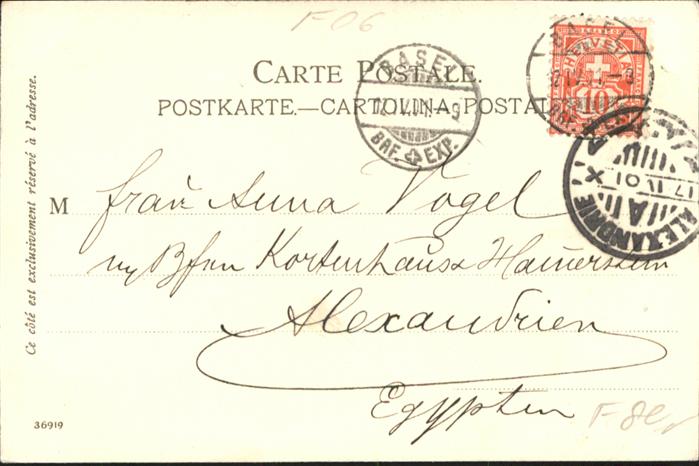 F 06
CARTE POSTALE.
POSTKARTE.—CARTOLINA POSTALE
BASEL
BRF. EXP.
BASEL
HELVETIA
10
ALEXANDRIE
17 IV 01 X
A
Ce côté est exclusivement réservé à l'adresse.
M Frau Anna Vogel
Kortenhaus &
Alexandrien
Egypten
36919